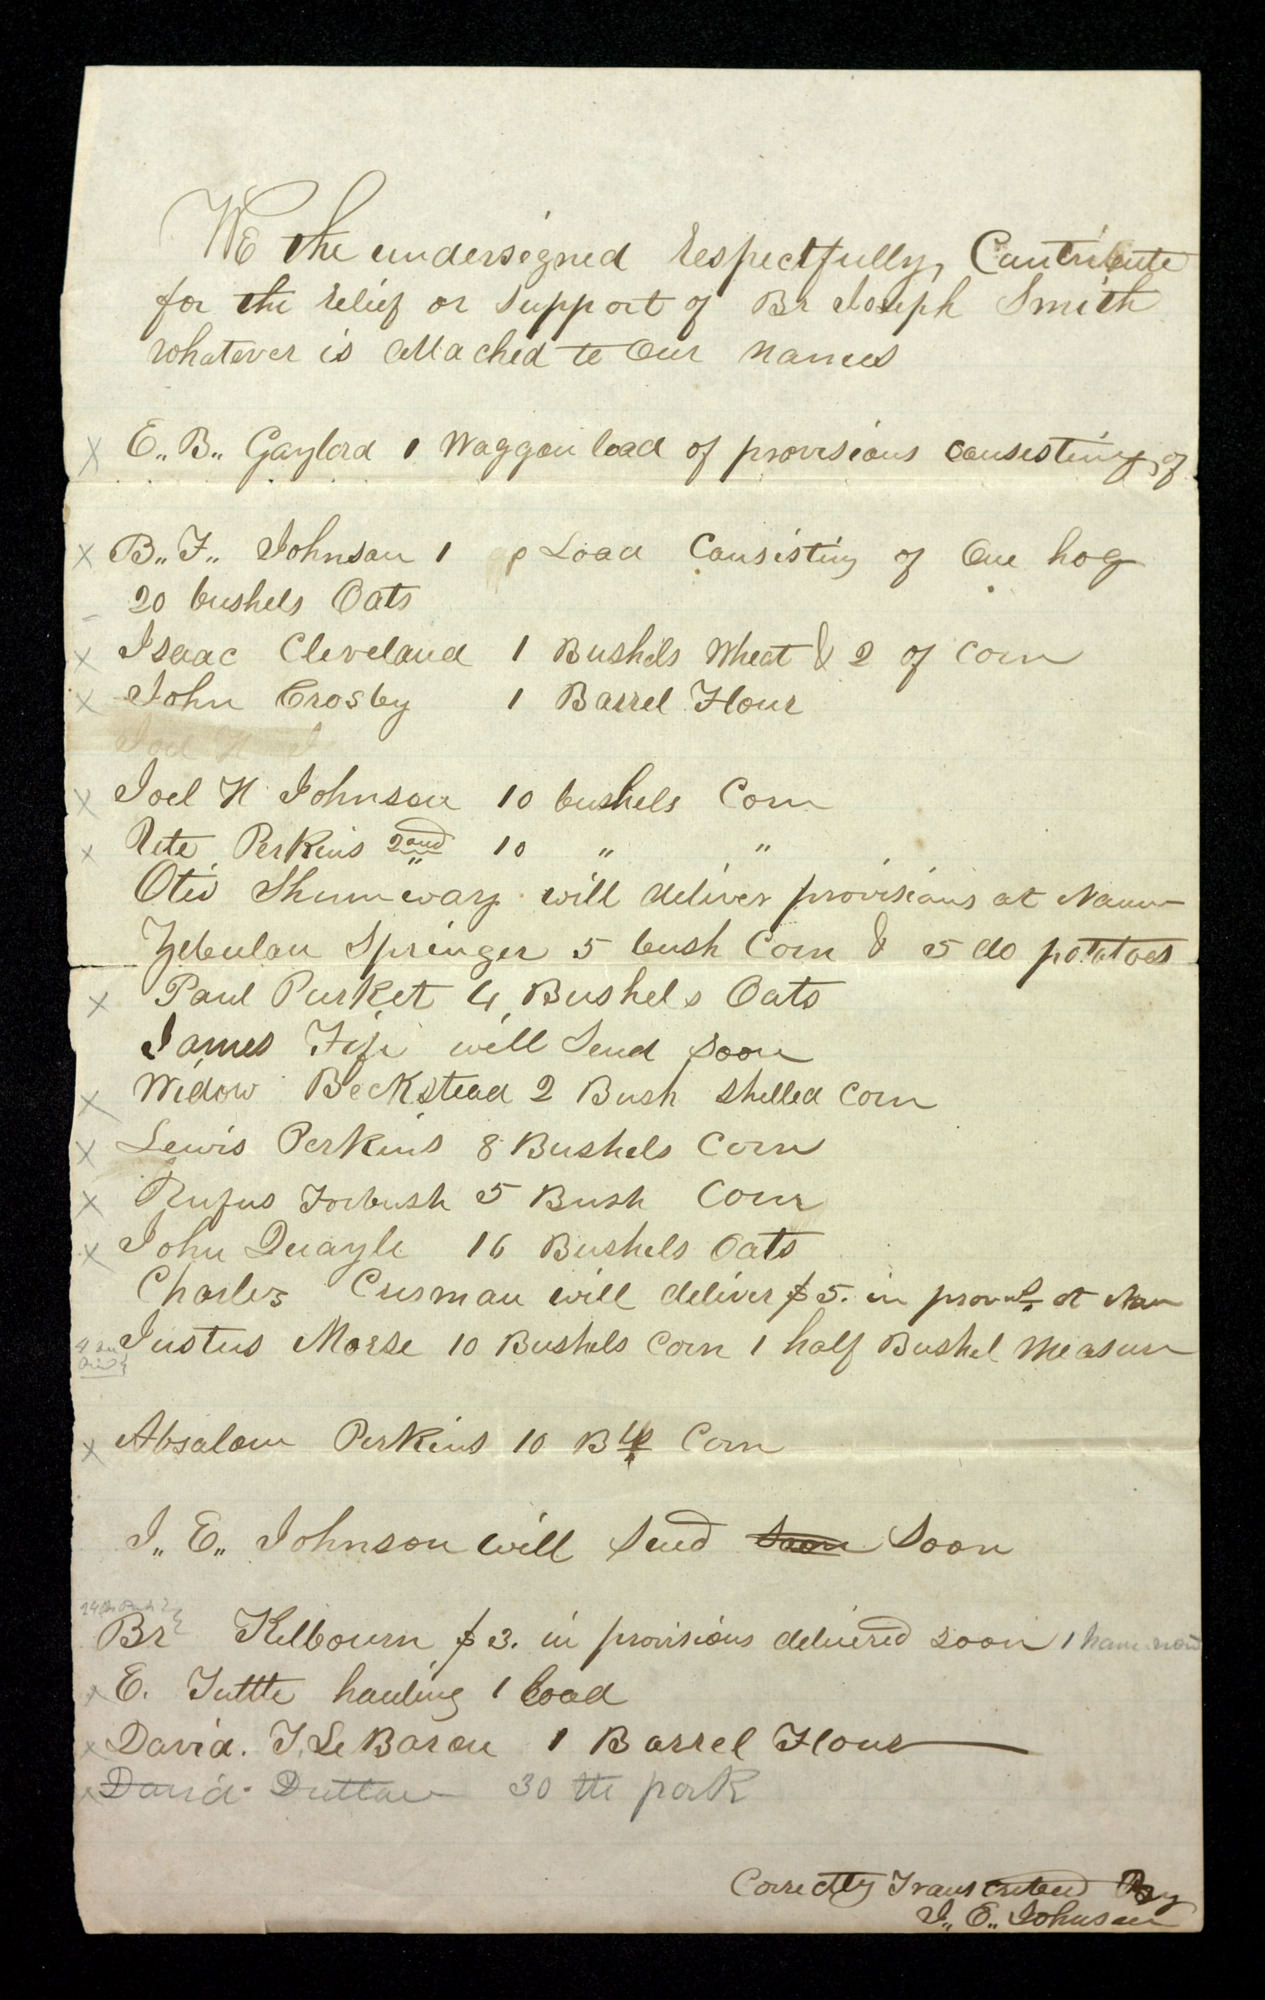 We the undersigned respectfully, Contribute
for the relief or support of Br Joseph Smith
whatever is attached to our names
X E.. B.. Gaylord 1 Waggon load of provisions consisting of
X B.. F.. Johnson 1 Load Consisting of One hog
20 bushels Oats
X Isaac Cleveland 1 Bushels Wheat & 2 of corn
X John Crosby 1 Barrel Flour
Joel H
X Joel H Johnson 10 bushels Corn
X Ute Perkins 2nd 10 " "
Otis Shumway will deliver provisions at Nauvoo
Zebulan Springer 5 bush Corn & 5 do potatoes
X Paul Purket 4 Bushels Oats
James Fife will Send soon
X Widow Beckstead 2 Bush shelled corn
X Lewis Perkins 8 Bushels Corn
X Rufus Forbush 5 Bush Corn
X John Quayle 16 Bushels Oats
Charles Cusman will deliver $5. in provns. at Nau
Justus Morse 10 Bushels Corn 1 half Bushel Measure
X Absalom Perkins 10 Bls Corn
J.. E.. Johnson will send soon Soon
Br Kelbourn $3. in provisions delivered soon 1 ham now
X E. Tuttle hauling 1 load
X David. T. Le Baron 1 Barrel Flour
X David Duttan 30 lb pork
Correctly Transcribed By
J.. E.. Johnson